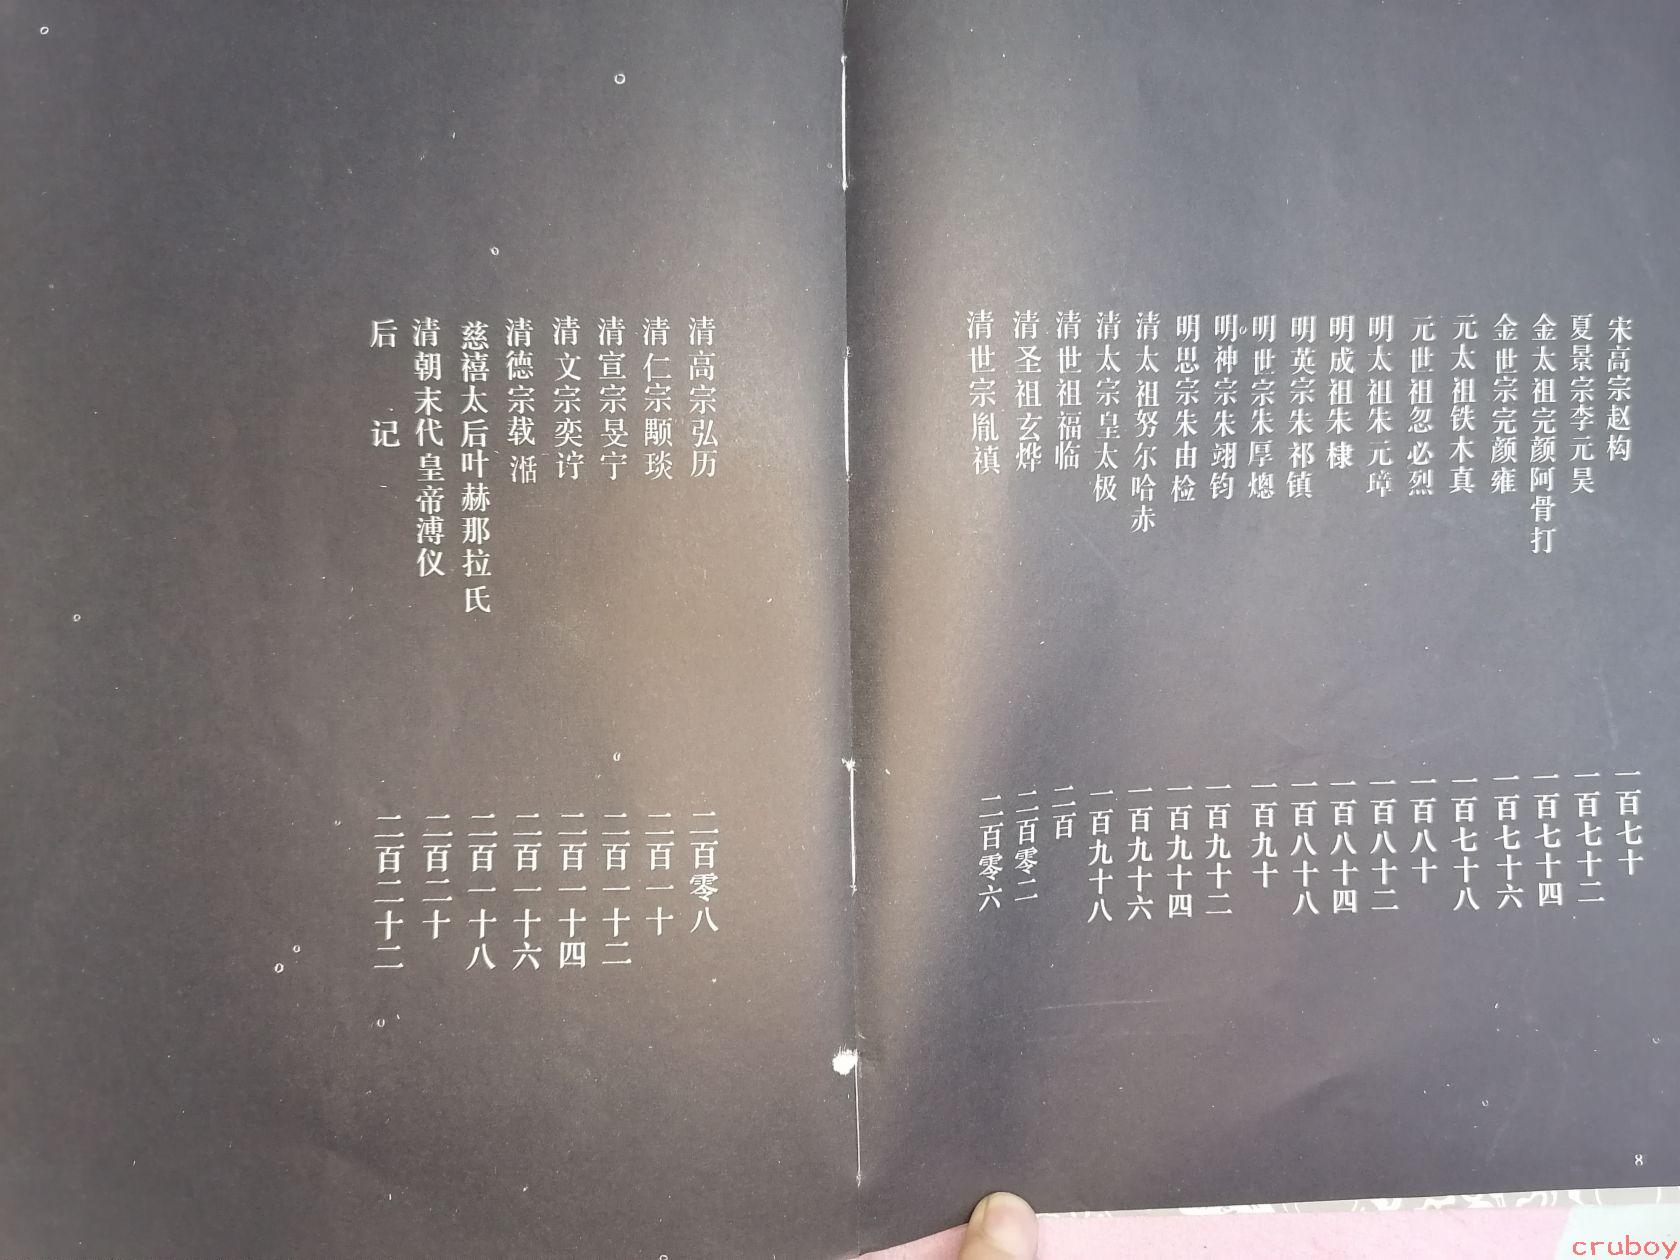 宋高宗赵构 一百七十
夏景宗李元昊 一百七十二
金太祖完颜阿骨打 一百七十四
金世宗完颜雍 一百七十六
元太祖铁木真 一百七十八
元世祖忽必烈 一百八十
明太祖朱元璋 一百八十二
明成祖朱棣 一百八十四
明英宗朱祁镇 一百八十八
明世宗朱厚熜 一百九十
明神宗朱翊钧 一百九十二
明思宗朱由检 一百九十四
清太祖努尔哈赤 一百九十六
清太宗皇太极 一百九十八
清世祖福临 二百
清圣祖玄烨 二百零二
清世宗胤禛 二百零六
8
清高宗弘历 二百零八
清仁宗颙琰 二百一十
清宣宗旻宁 二百一十二
清文宗奕𬣞 二百一十四
清德宗载湉 二百一十六
慈禧太后叶赫那拉氏 二百一十八
清朝末代皇帝溥仪 二百二十
后记 二百二十二
cruboy